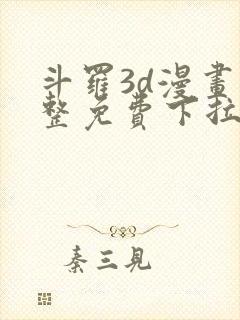 斗羅3d漫畫
整免費下拉
秦三見